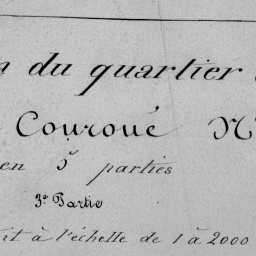 du quartier
Couroué N
en 3 parties
3e Partie
à l'échelle de 1 à 2000